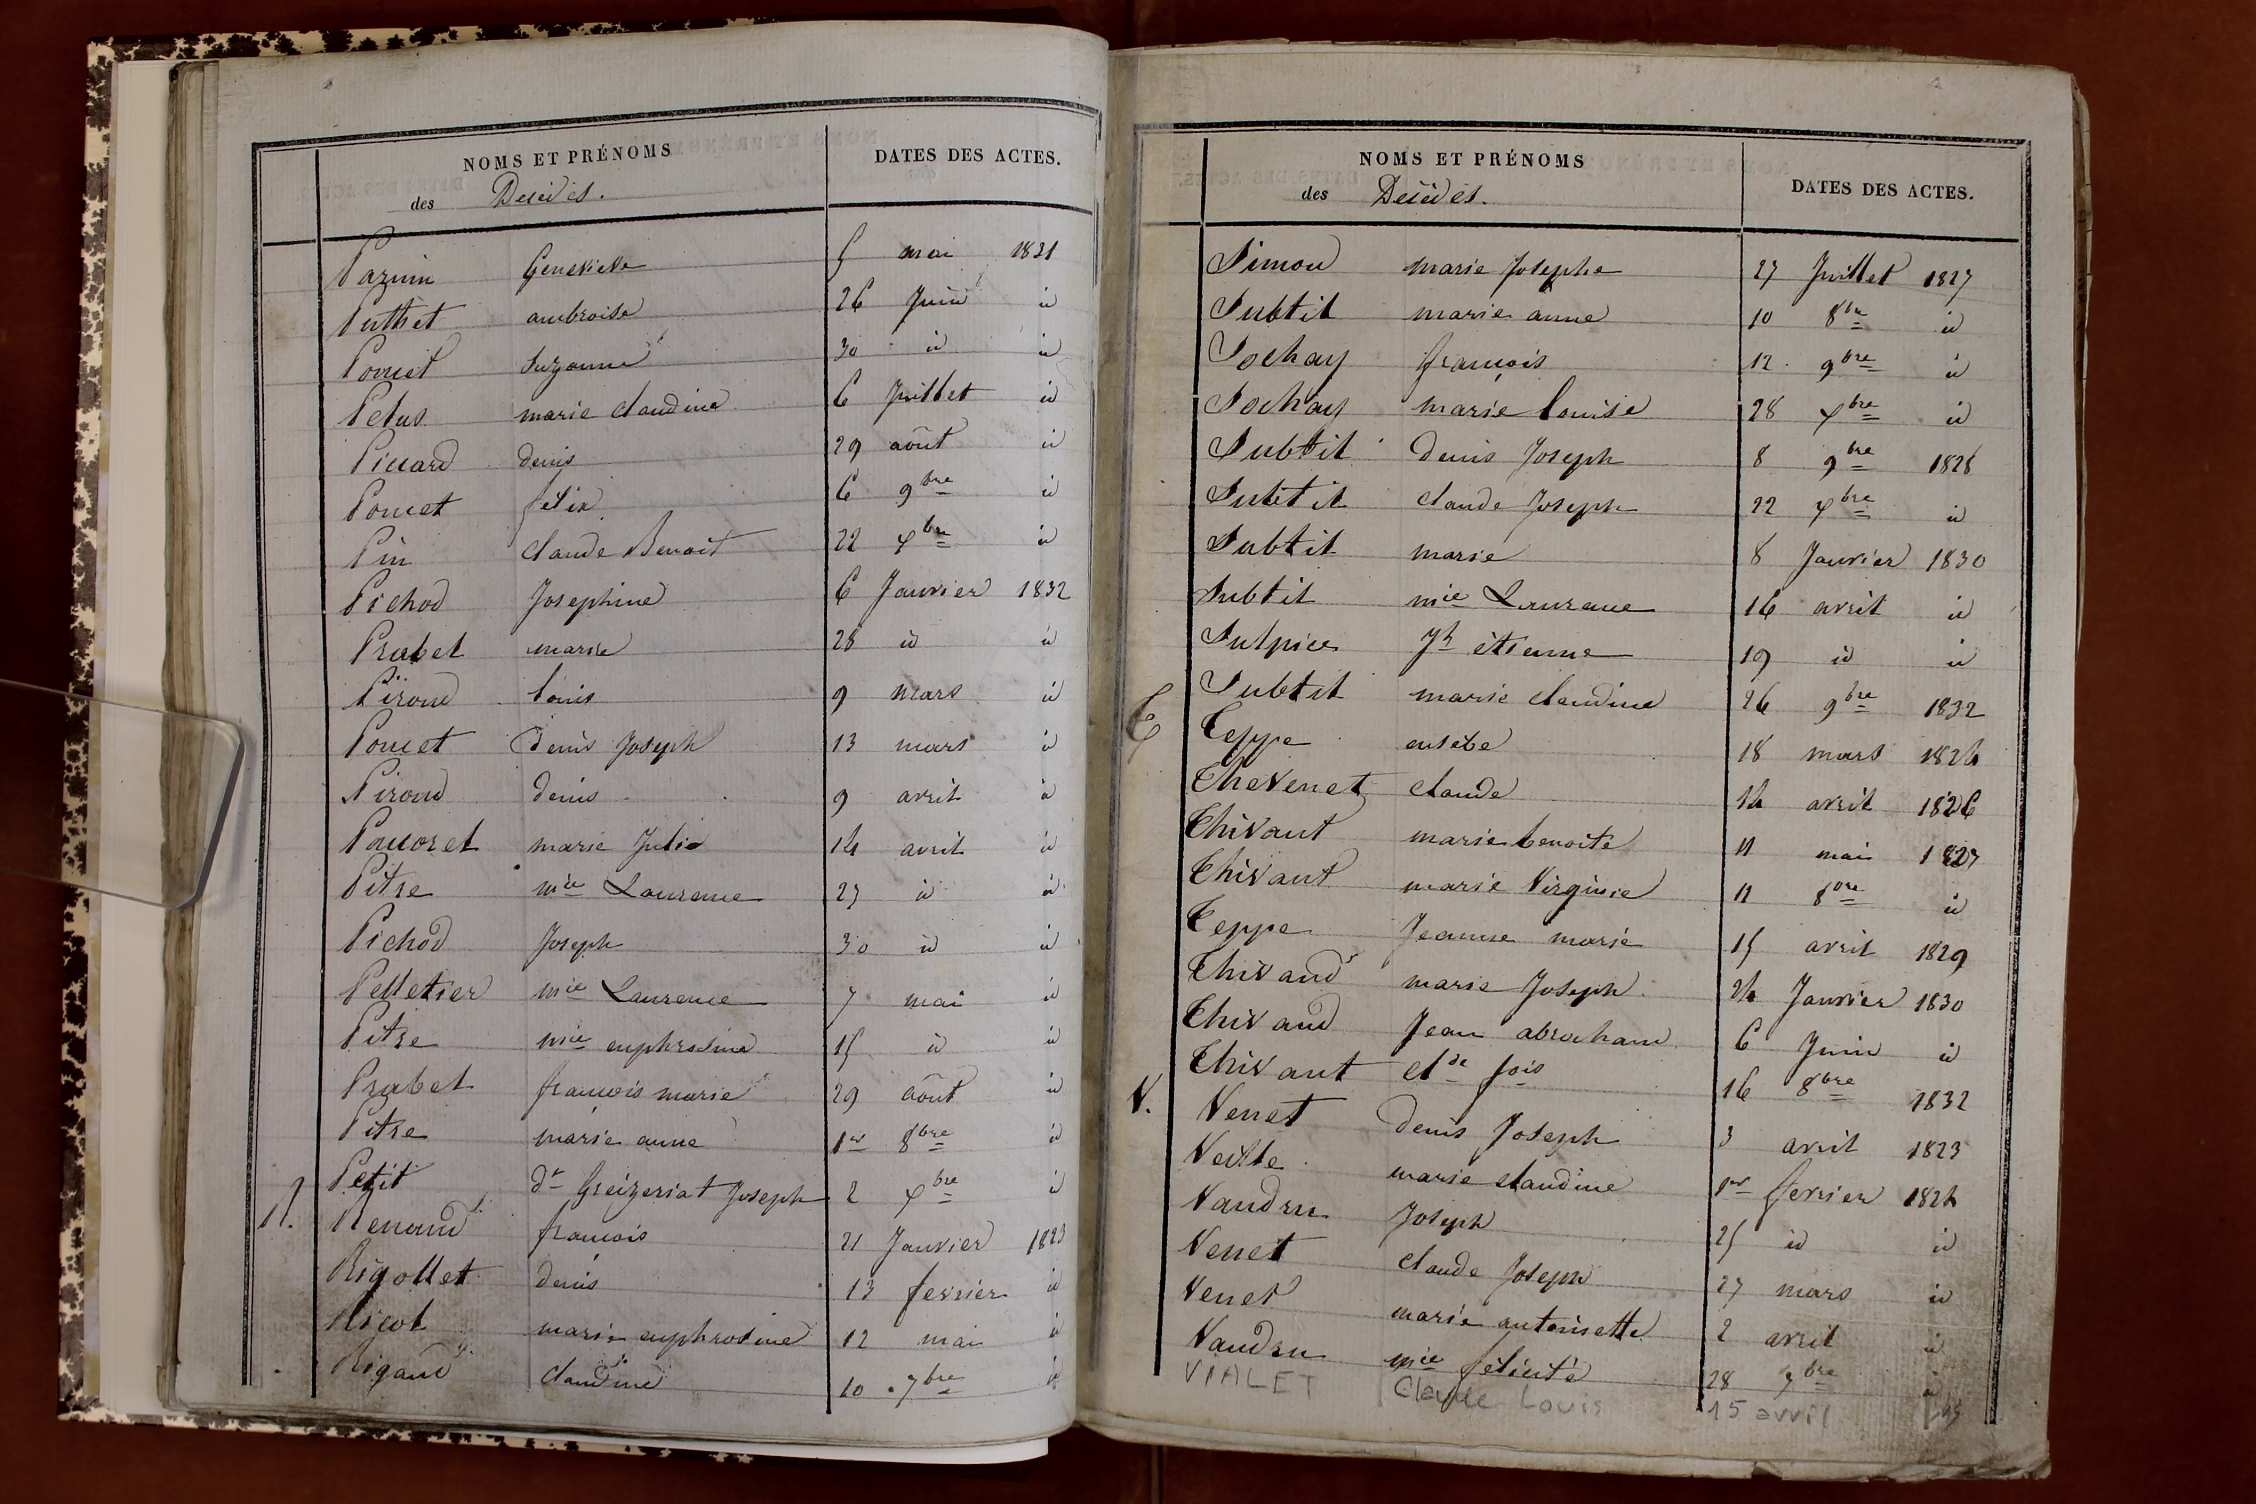 NOMS ET PRÉNOMS
des Décédés.
DATES DES ACTES.
Pazuin Genevieve 5 mai 1831
Puthet ambroise 26 Juin id
Poncet Suzanne 30 id id
Pelus marie claudine 6 Juillet id
Piccard denis 29 août id
Poncet felix 6 9bre id
Pin claude Benoit 22 Xbre id
Pichod Josephine 6 Janvier 1832
Prabel marie 28 id id
Piroud louis 9 mars id
Poncet denis Joseph 13 mars id
Piroud denis 9 avril id
Poncoret marie Julie 14 avril id
Pitre mie Laurence 27 id id
Pichod Joseph 30 id id
Pelletier mie Laurence 7 mai id
Pitre mie euphrosine 15 id id
Prabel francois marie 29 août id
Pitre marie anne 1er 8bre id
Petit dt Greizeriat Joseph 2 Xbre id
R. Renaud francois 21 Janvier 1823
Rigollet denis 13 fevrier id
Ricol marie euphrosine 12 mai id
Rigaud claudine 10 7bre id
NOMS ET PRÉNOMS
des Décédés.
DATES DES ACTES.
Simon marie Josephe 27 Juillet 1827
Subtil marie anne 10 8bre id
Sochay francois 12 9bre id
Sochay marie louise 28 Xbre id
Subtil denis Joseph 8 9bre 1828
Subtil claude Joseph 22 Xbre id
Subtil marie 8 Janvier 1830
Subtil mie Laurence 16 avril id
Sulpice Jh etienne 19 id id
Subtil marie claudine 26 9bre 1832
T Teppe eusebe 18 mars 1824
Thevenet claude 14 avril 1826
Thivant marie benoite 11 mai 1827
Thivant marie Virginie 11 8bre id
Teppe Jeanne marie 15 avril 1829
Thivand marie Joseph 24 Janvier 1830
Thivand Jean abraham 6 Juin id
Thivant clde fois 16 8bre 1832
V. Venet denis Joseph 3 avril 1823
Veille marie claudine 1er fevrier 1824
Vaudru Joseph 25 id id
Venet claude Joseph 27 mars id
Venet marie antoinette 2 avril id
Vaudru mie félicité 28 7bre id
VIALET Claude Louis 15 avril